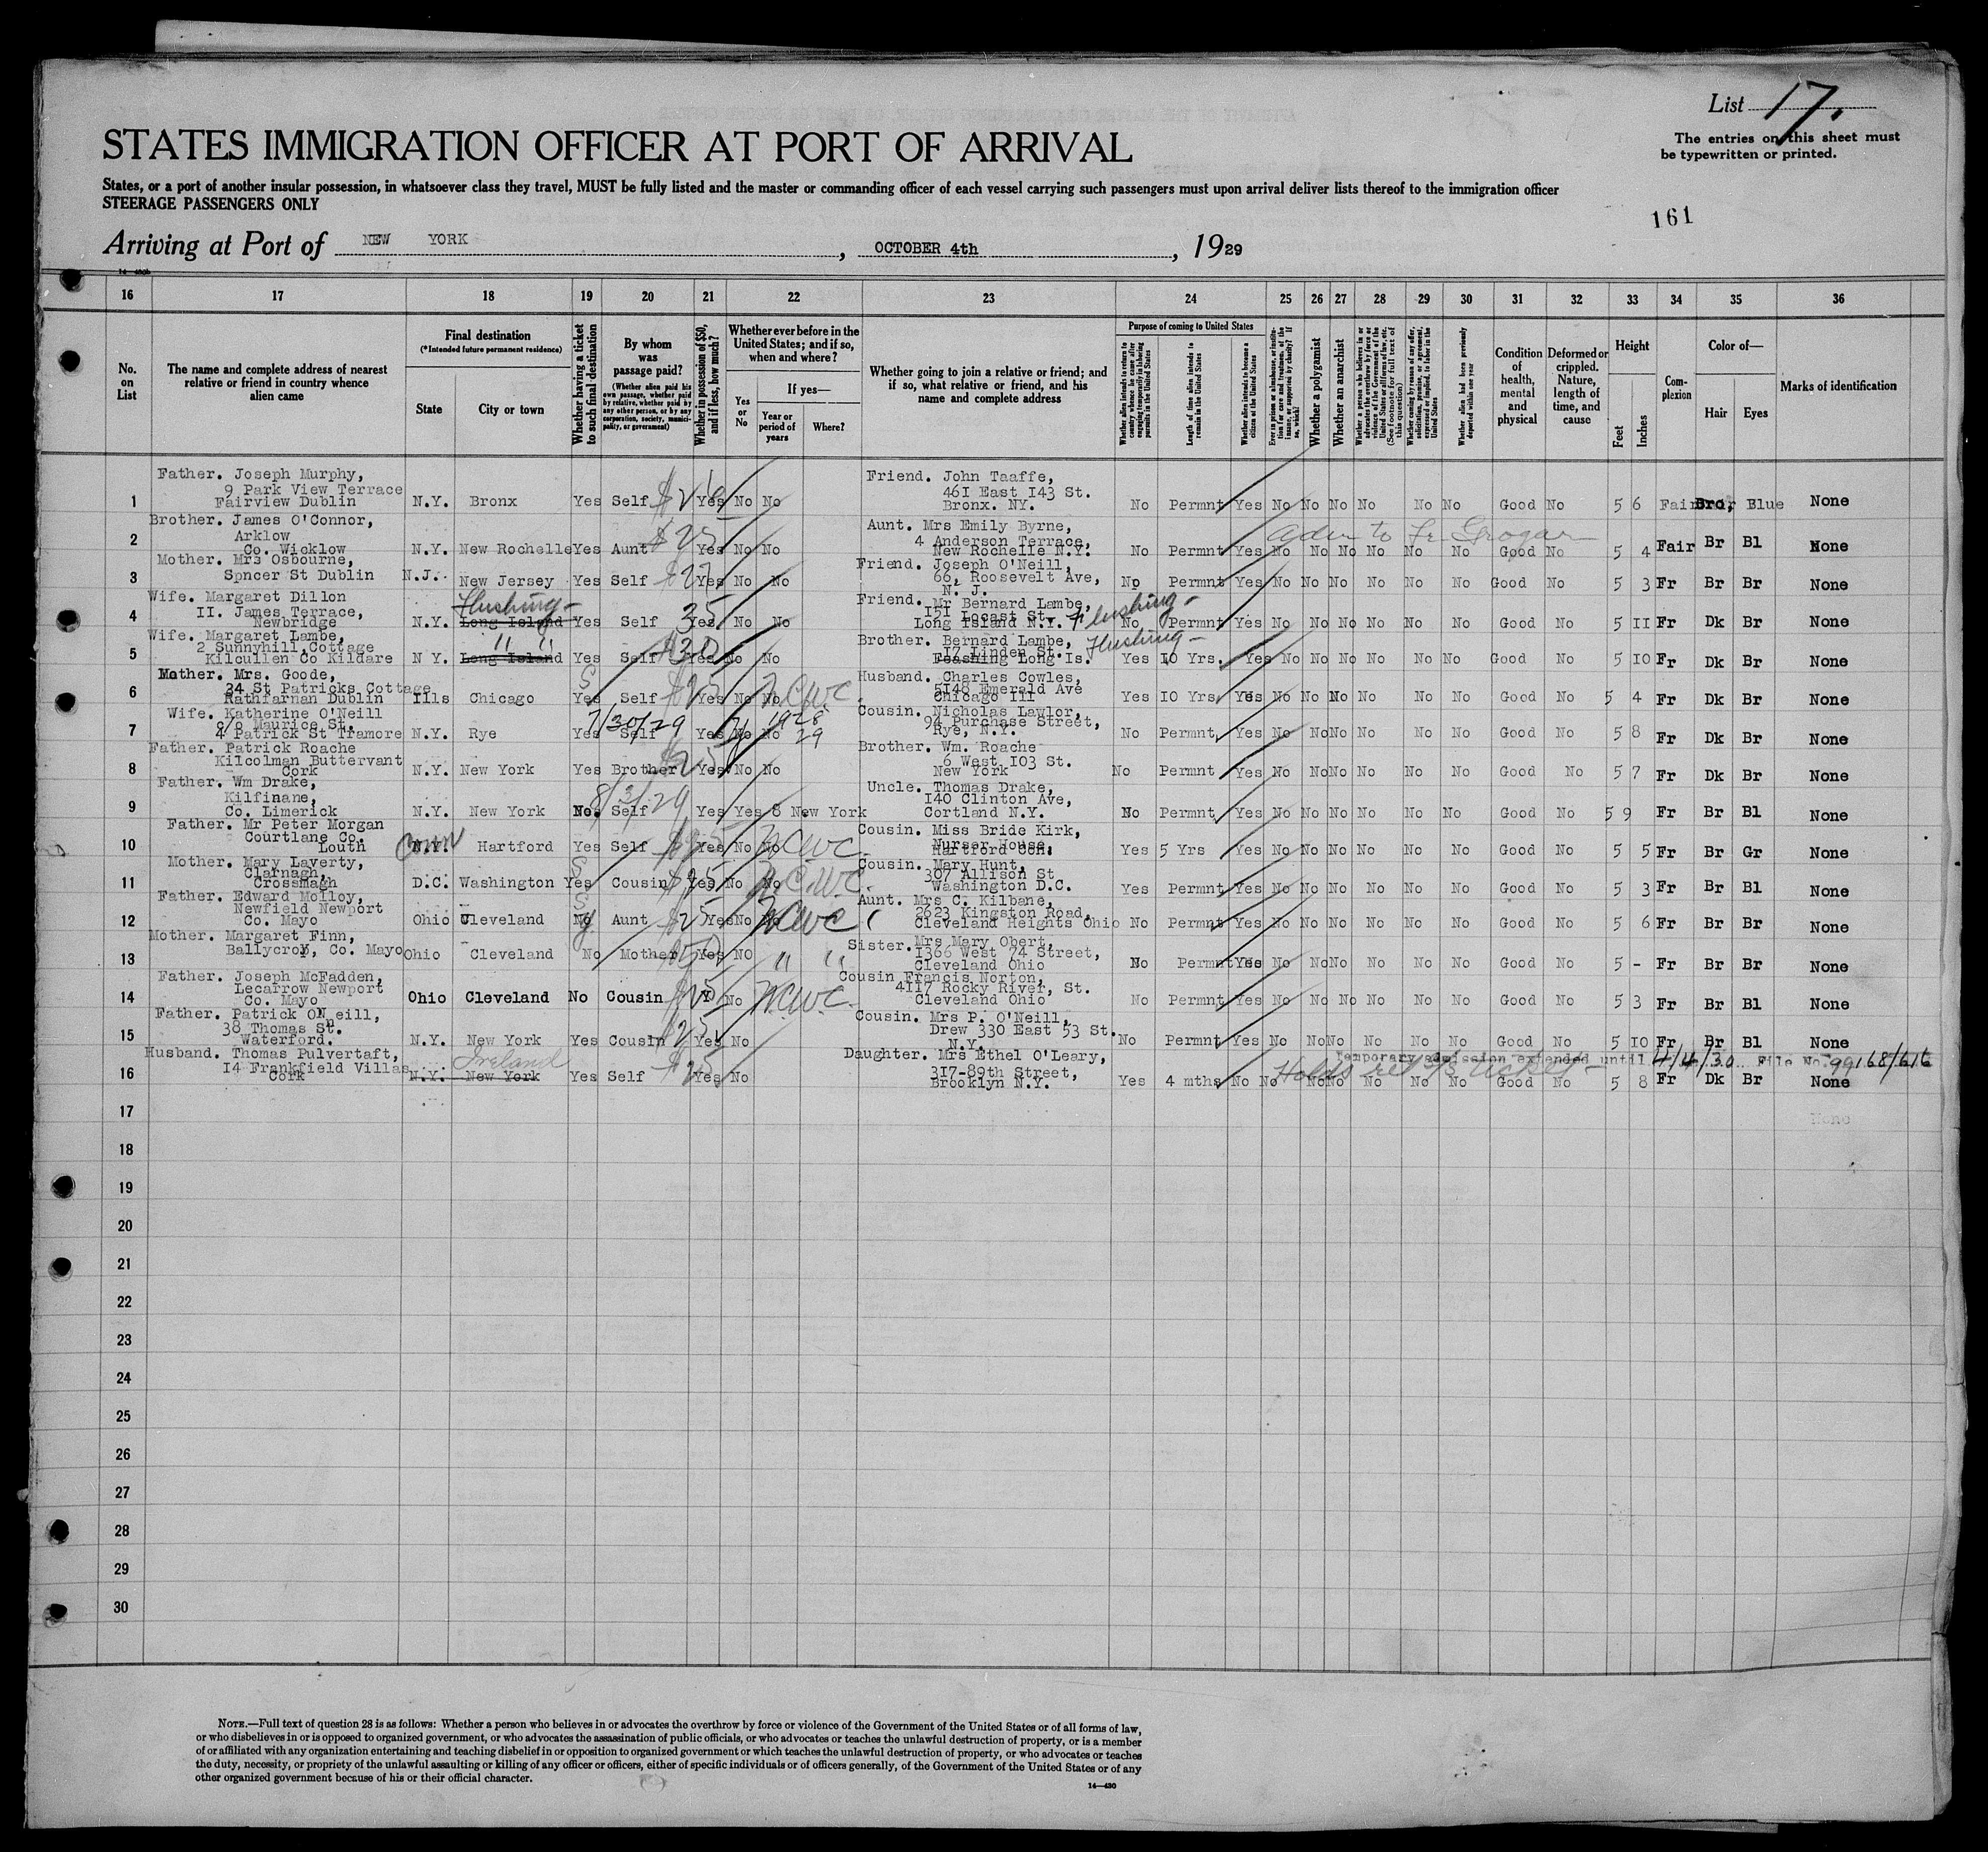 List 17.
The entries on this sheet must
be typewritten or printed.
STATES IMMIGRATION OFFICER AT PORT OF ARRIVAL
States, or a port of another insular possession, in whatsoever class they travel, MUST be fully listed and the master or commanding officer of each vessel carrying such passengers must upon arrival deliver lists thereof to the immigration officer
STEERAGE PASSENGERS ONLY
161
Arriving at Port of NEW YORK, OCTOBER 4th, 1929
16 17 18 19 20 21 22 23 24 25 26 27 28 29 30 31 32 33 34 35 36
No. on List
The name and complete address of nearest relative or friend in country whence alien came
Final destination
(*Intended future permanent residence)
State
City or town
Whether having a ticket to such final destination
By whom was passage paid?
(Whether alien paid his own passage, whether paid by relative, whether paid by any other person, or by any corporation, society, municipality, or government)
Whether in possession of $50, and if less, how much?
Whether ever before in the United States; and if so, when and where?
Yes or No
If yes—
Year or period of years
Where?
Whether going to join a relative or friend; and if so, what relative or friend, and his name and complete address
Purpose of coming to United States
Length of time alien intends to remain in the United States
Whether alien intends to become a citizen of the United States
Whether a polygamist
Whether an anarchist
Condition of health, mental and physical
Deformed or crippled. Nature, length of time, and cause
Height
Feet
Inches
Complexion
Color of—
Hair
Eyes
Marks of identification
Father. Joseph Murphy,
9 Park View Terrace
1 Fairview Dublin N.Y. Bronx Yes Self $26 Yes No No
Friend. John Taaffe,
461 East 143 St.
Bronx. NY. No Permnt Yes No No No No No No Good No 5 6 Fair Blue None
Brother. James O'Connor,
Arklow
2 Co. Wicklow N.Y. New Rochelle Yes Aunt $25 Yes No No
Aunt. Mrs Emily Byrne,
4 Anderson Terrace,
New Rochelle N.Y. No Permnt Yes No No No No No No Good No 5 4 Fair Br Bl None
adm to Fr Grogan
Mother. Mrs Osbourne,
3 Spncer St Dublin N.J. New Jersey Yes Self $27 Yes No No
Friend. Joseph O'Neill,
66, Roosevelt Ave,
N. J. No Permnt Yes No No No No No No Good No 5 3 Fr Br Br None
Wife. Margaret Dillon
II. James Terrace,
4 Newbridge N.Y. Long Island Flushing - Yes Self 35 Yes No No
Friend. Mr Bernard Lambe,
151 Locast St.
Long Island N.Y. Flushing - No, Permnt Yes No No No No No No Good No 5 II Fr Dk Br None
Wife. Margaret Lambe,
2 Sunnyhill,Cottage
5 Kilcullen Co Kildare N Y. Long Island " " Yes Self $30 Yes No No
Brother. Bernard Lambe,
17 Linden St. Flushing -
Feashing Long Is. Yes IO Yrs. Yes No No No No No No Good No 5 IO Fr Dk Br None
Mother. Mrs. Goode,
24 St Patricks Cottage
6 Rathfarnan Dublin Ills Chicago Yes Self $25 Yes No No N.C.W.C.
Husband. Charles Cowles,
5148 Emerald Ave
Chicago Ill Yes IO Yrs Yes No No No No No No Good No 5 4 Fr Dk Br None
Wife. Katherine O'Neill
c/o Maurice St.
7 4 Patrick St Tramore N.Y. Rye Yes 7/30/29 Self Yes No No 1928 29
Cousin. Nicholas Lawlor,
94 Purchase Street,
Rye, N.Y. No Permnt, Yes No No No No No No Good No 5 8 Fr Dk Br None
Father. Patrick Roache
Kilcolman Buttervant
8 Cork N.Y. New York Yes Brother $25 Yes No No
Brother. Wm. Roache
6 West IO3 St.
New York No Permnt Yes No No No No No No Good No 5 7 Fr Dk Br None
Father. Wm Drake,
Kilfinane,
9 Co. Limerick N.Y. New York No. 8/3/29 Self Yes Yes 8 New York
Uncle. Thomas Drake,
140 Clinton Ave,
Cortland N.Y. No Permnt, Yes No No No No No No Good No 5 9 Fr Br Bl None
Father. Mr Peter Morgan
Courtlane Co.
10 Louth N.Y. Conn Hartford Yes Self $25 Yes No No NCWC.
Cousin. Miss Bride Kirk,
Nurser House,
Hartford Conn. Yes 5 Yrs Yes No No No No No No Good No 5 5 Fr Br Gr None
Mother. Mary Laverty,
Clarnagh,
11 Crossmagh D.C. Washington Yes Cousin $25 Yes No No N.C.W.C.
Cousin. Mary Hunt,
307 Allison St
Washington D.C. Yes Permnt Yes No No No No No No Good No 5 3 Fr Br Bl None
Father. Edward Molloy,
Newfield Newport
12 Co. Mayo Ohio Cleveland No Aunt $25 Yes No No NCWC
Aunt. Mrs C. Kilbane,
2623 Kingston Road,
Cleveland Heights Ohio No Permnt Yes No No No No No No Good No 5 6 Fr Br Br None
Mother. Margaret Finn,
Ballycroy, Co. Mayo Ohio
13 Cleveland No Mother $50 Yes NO " "
Sister. Mrs Mary Obert,
1366 West 74 Street,
Cleveland Ohio No Permnt Yes No No No No No No Good No 5 - Fr Br Br None
Father. Joseph McFadden,
Lecarrow Newport
14 Co. Mayo Ohio Cleveland No Cousin $25 No N.C.W.C.
Cousin Francis Norton,
4117 Rocky River, St.
Cleveland Ohio No Permnt Yes No No No No No No Good No 5 3 Fr Br Bl None
Father. Patrick ON eill,
38 Thomas St.
15 Waterford. N.Y. New York Yes Cousin $25 Yes No
Cousin. Mrs P. O'Neill,
Drew 330 East 53 St.
N.Y. No Permnt Yes No No No No No No Good No 5 IO Fr Br Bl None
Husband. Thomas Pulvertaft,
14 Frankfield Villas
16 Cork N.Y. New York Ireland Yes Self $25 Yes No
Daughter. Mrs Ethel O'Leary,
317-89th Street,
Brooklyn N.Y. Yes 4 mths No No No No No No No Good No 5 8 Fr Dk Br None
Temporary admission extended until 4/4/30 File No. 99168/616
Holds ret S/S ticket -
17 None
18
19
20
21
22
23
24
25
26
27
28
29
30
NOTE.—Full text of question 28 is as follows: Whether a person who believes in or advocates the overthrow by force or violence of the Government of the United States or of all forms of law,
or who disbelieves in or is opposed to organized government, or who advocates the assassination of public officials, or who advocates or teaches the unlawful destruction of property, or is a member
of or affiliated with any organization entertaining and teaching disbelief in or opposition to organized government or which teaches the unlawful destruction of property, or who advocates or teaches
the duty, necessity, or propriety of the unlawful assaulting or killing of any officer or officers, either of specific individuals or of officers generally, of the Government of the United States or of any
other organized government because of his or their official character.
14—430